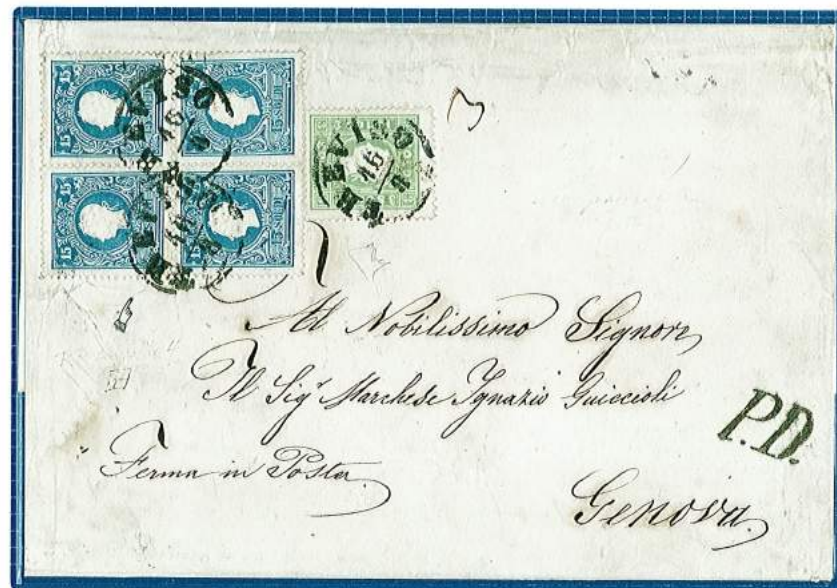 TREVISO
16
8
TREVISO
16
8
TREVISO
16
8
15
15
15
15
Al Nobilissimo Signor
Il Sigr Marchese Ignazio Guiccioli
Ferma in Posta
Genova
P.D.